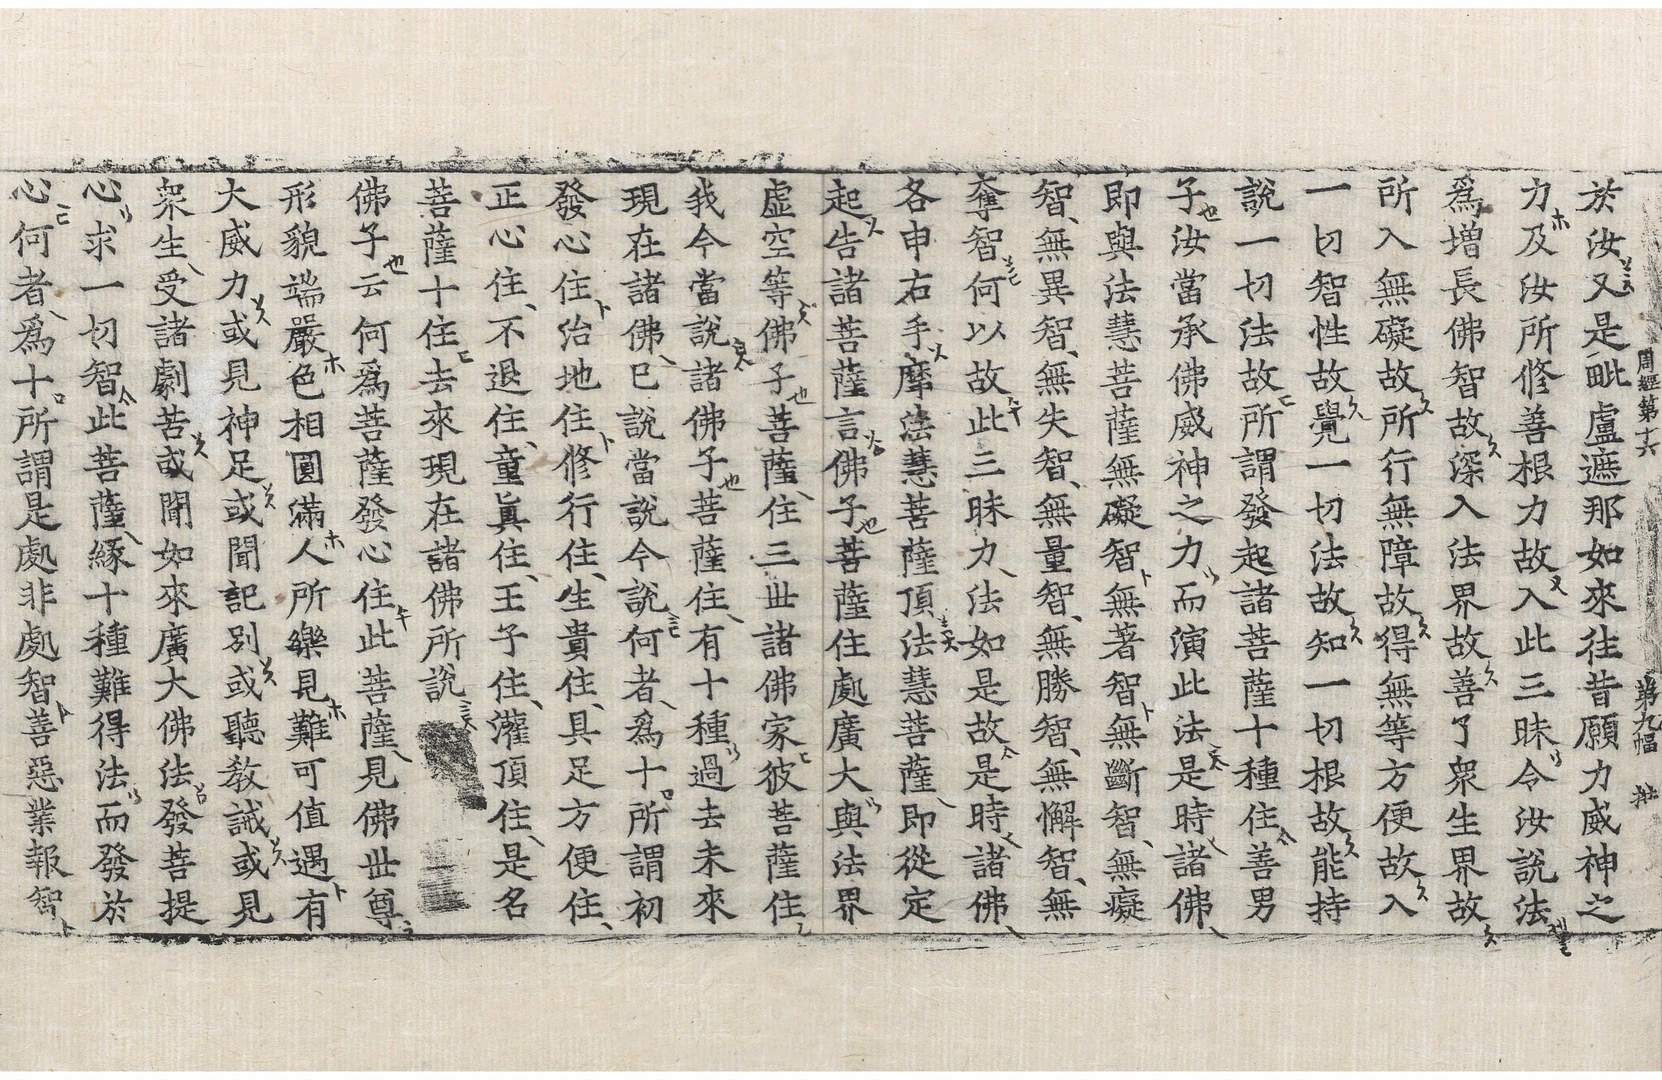 周經第十六 第九幅
於汝又是毗盧遮那如來往昔願力威神之
力及汝所修善根力故入此三昧令汝說法
爲增長佛智故深入法界故善了衆生界故
所入無礙故所行無障故得無等方便故入
一切智性故覺一切法故知一切根故能持
說一切法故所謂發起諸菩薩十種住善男
子汝當承佛威神之力而演此法是時諸佛
即與法慧菩薩無礙智無著智無斷智無癡
智無異智無失智無量智無勝智無懈智無
奪智何以故此三昧力法如是故是時諸佛
各申右手摩法慧菩薩頂法慧菩薩即從定
起告諸菩薩言佛子菩薩住處廣大與法界
虛空等佛子菩薩住三世諸佛家彼菩薩住
我今當說諸佛子菩薩住有十種過去未來
現在諸佛已說當說今說何者爲十所謂初
發心住治地住修行住生貴住具足方便住
正心住不退住童眞住王子住灌頂住是名
菩薩十住去來現在諸佛所說
佛子云何爲菩薩發心住此菩薩見佛世尊
形貌端嚴色相圓滿人所樂見難可值遇有
大威力或見神足或聞記別或聽教誡或見
衆生受諸劇苦或聞如來廣大佛法發菩提
心求一切智此菩薩緣十種難得法而發於
心何者爲十所謂是處非處智善惡業報智